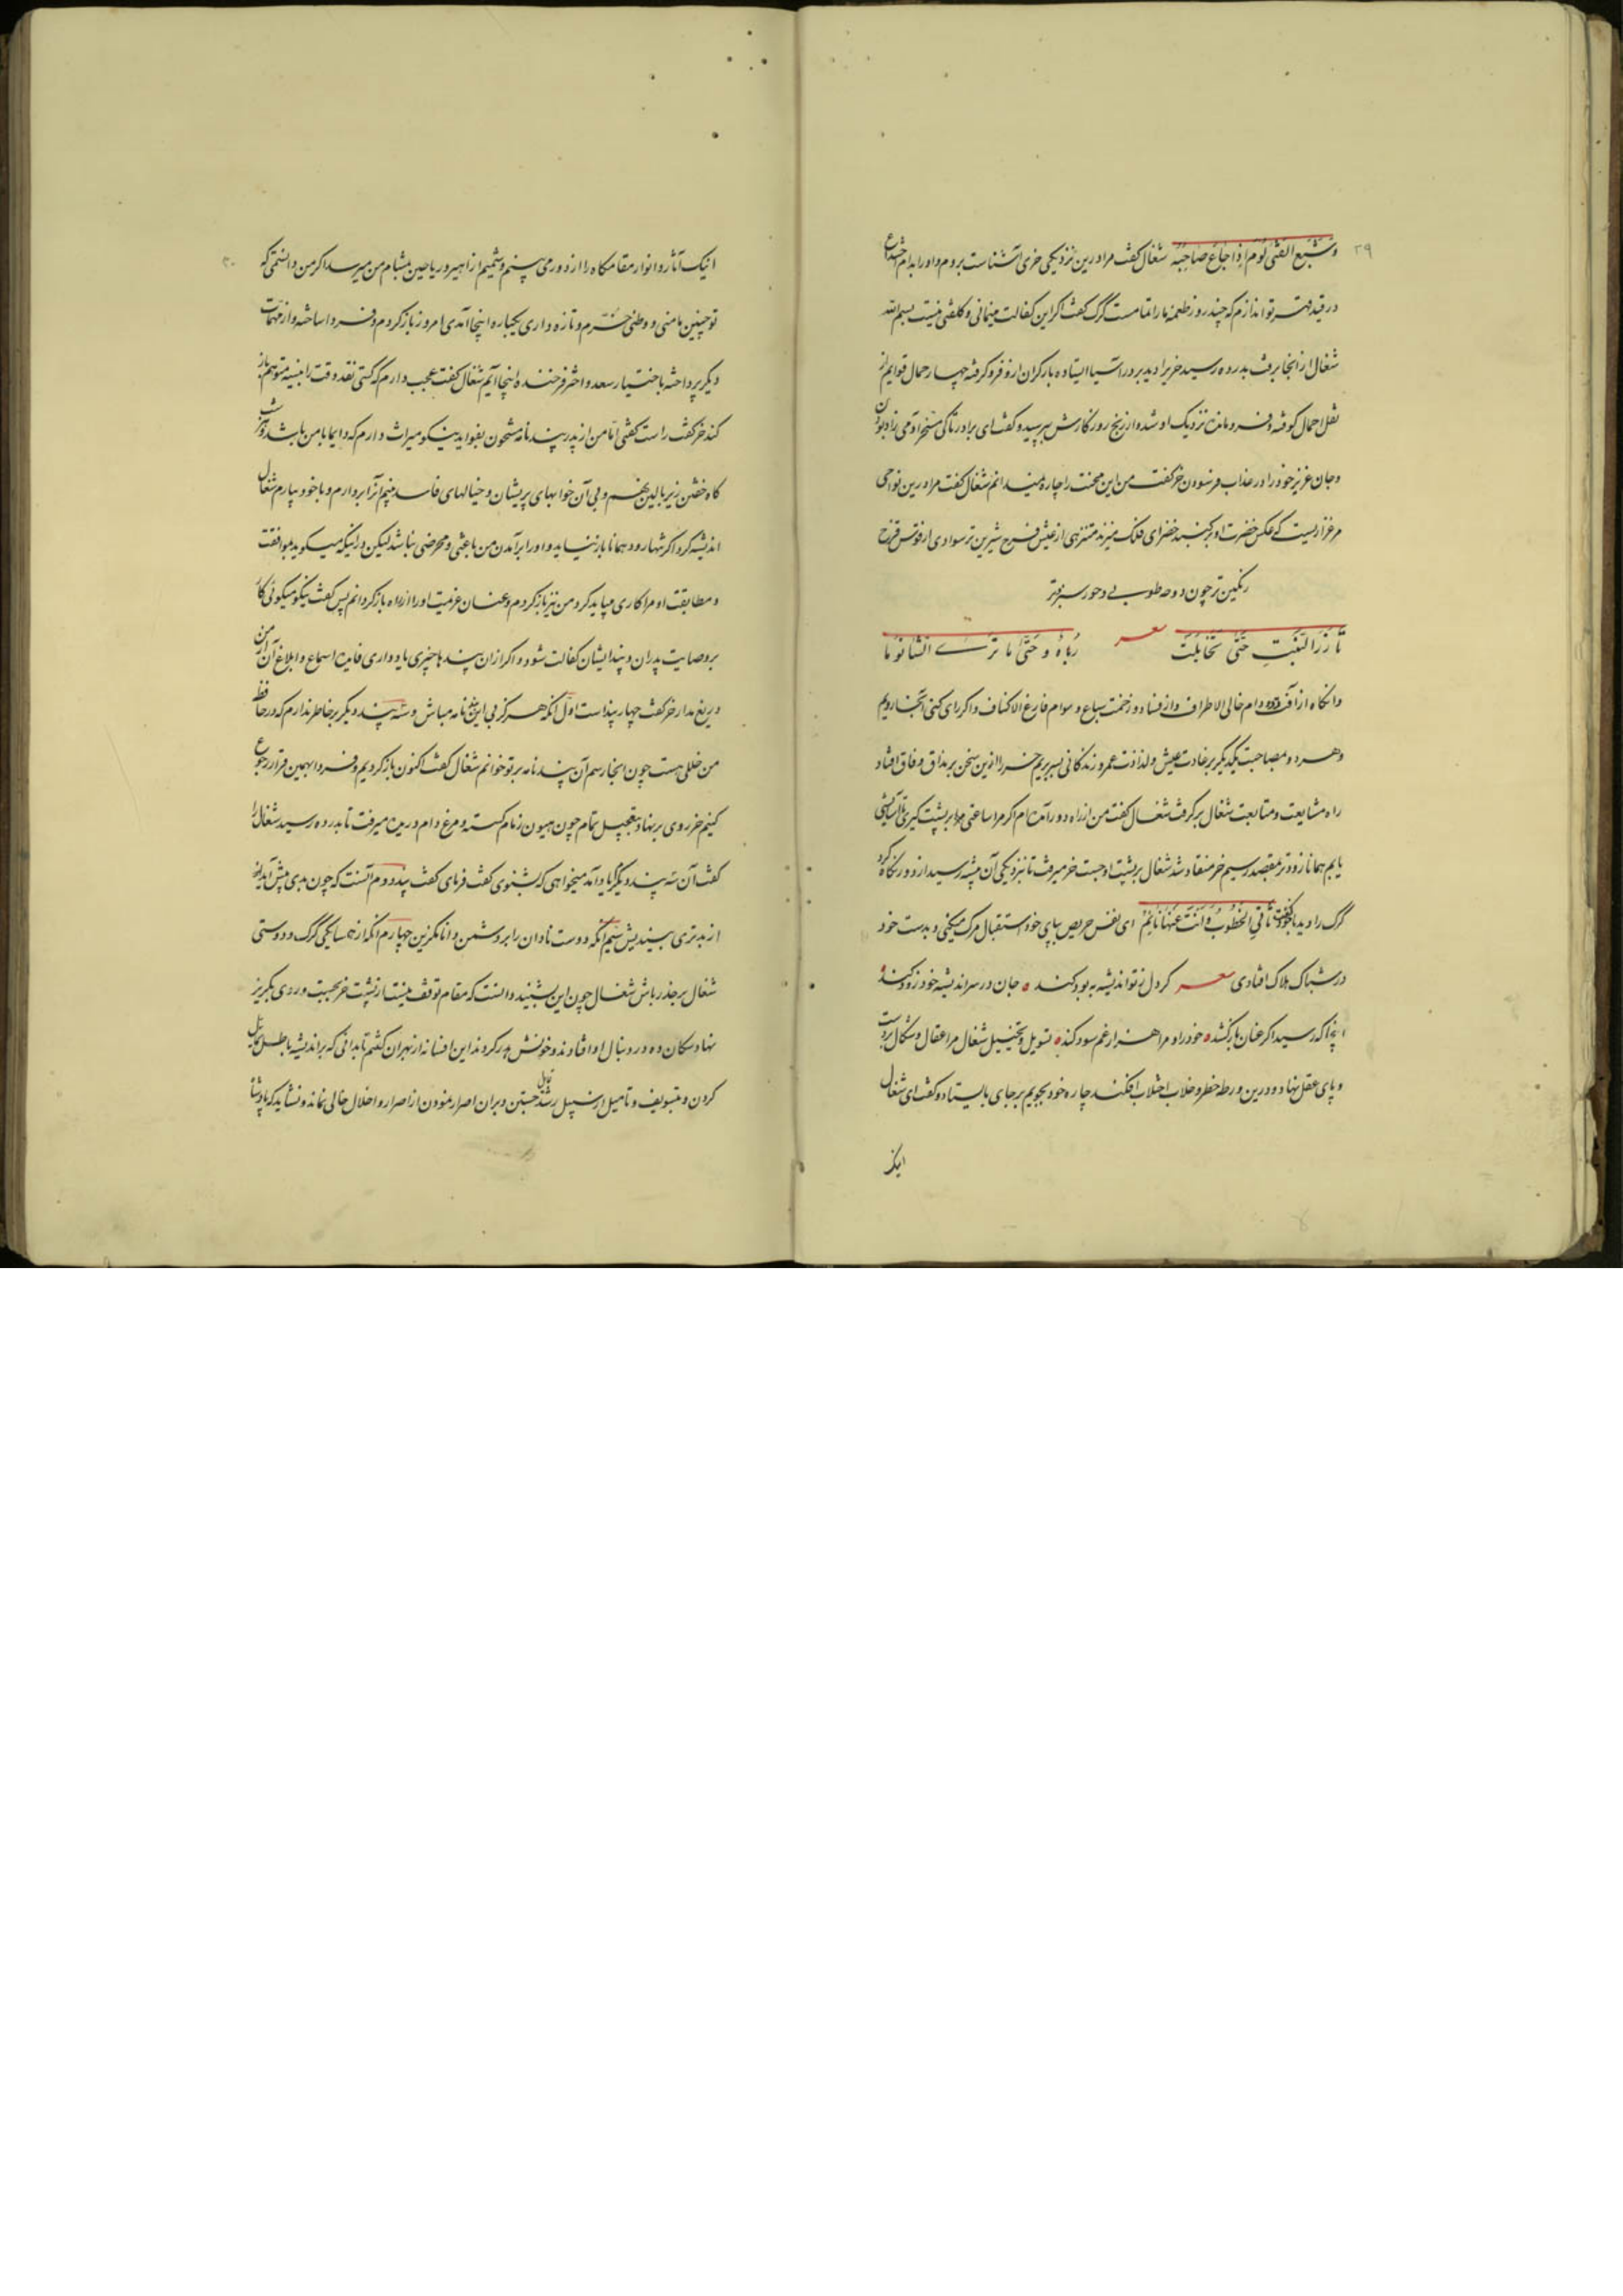 ۲۹
وَشَبَعُ الفَتی لُومٌ اِذا جَاعَ صَاحِبُه شغال کفت مرا درین نزدیکی خری آشناست بروم و اورا بدام خداع
در قید قهر تو اندازم که چند روز طعمهٔ ما را تمامست گرگ کفت اگر این کفالت مینمائی و کلفتی نیست بسم الله
شغال از انجا برفت بدر ده رسید خریرا دید بر در آسیا ایستاده بار گران ازو فرو گرفته چهار حمال قوایم از
ثقل احمال کوفته و فرو مانده نزدیک او شد و از رنج روزگارش بپرسید و گفت ای برادر تا کی مسخر آدمی زاد بودن
و جان عزیز خود را در عذاب فرسودن خر کفت من این محنت را چاره نمیدانم شغال کفت مرا درین نواحی
مرغزاریست که عکس خضرت او بر گنبد خضرای فلک میزند متنزهی از عیش فرح شیرین‌تر سوادی از قوس قزح
رنگین‌تر چون دوحهٔ طوبی و حور سبزتر
تَأَزَّرَ النَّبتِ حَتّی تَخَایَلَت شعر رُبَاهُ وَ حَتّی مَا تَرَی الشَّاءُ نُوَّمَا
وانگاه از آفت دد و دام خالی الاطراف و از فساد و زحمت سباع و سوام فارغ الاکناف و اگر رای کنی آنجا رویم
و هر دو بمصاحبت یکدیگر برغادت عیش و لذاذت عمر زندگانی بسر بریم خر را ازین سخن بر مذاق وفاق افتاد
راه مشایعت و متابعت شغال بر گرفت شغال کفت من از راه دور آمده‌ام اگر مرا ساعتی بر پشت گیری تا آسایشی
یابم همانا زودتر بمقصد رسیم خر منقاد شد شغال بر پشت او جست خر میرفت تا بنزدیکی آن بیشه رسید از دور نگاه کرد
گرگ را دید با خود گفت تَأتِی الخُطُوبُ وَ اَنتَ عَنهَا نَایِمٌ ای نفس حریص بپای خود استقبال مرگ میکنی و بدست خود
در شباک هلاک افتادی شعر گر دل ز تو اندیشه بهبود کند جان در سر اندیشه خود زود کند
آنجا که رسید اگر عنان باز کشد خود را و مرا هزار غم سود کند تسویل و تخییل شغال مرا عقال و شکال بر دست
و پای عقل نهاد و درین ورطه خطر و خلاب اختلاب افکند چاره خود بجویم بر جای بایستاد و گفت ای شغال
اینک
۳۰
اینک آثار و انوار مقامگاه را از دور می‌بینم و شمیم ازاهیر و ریاحین بمشام من میرسد اگر من دانستمی که
تو چنین مأمنی و وطنی خرم و تازه داری یکباره اینجا آمدی امروز باز گردم و فردا ساخته و از مهمات
دیگر پرداخته باختیار سعد و اختر فرخنده اینجا آیم شغال کفت عجب دارم که کسی نقد وقت را بنسیه متوهم باز
کند خر کفت راست کفتی اما من از پدر پند نامهٔ مشحون بفواید نیکو میراث دارم که دایما با من باشد و شب
گاه خفتن زیر بالین نهم و بی آن خوابهای پریشان و خیالهای فاسد بینم آنرا بردارم و با خود بیارم شغال
اندیشه کرد اگر تنها رود همانا باز نیاید و او را بر آمدن من باعثی و محرضی نباشد لیکن درانکه میگوید بموافقت
و مطابقت او مرا کاری میباید کرد من نیز باز گردم و عنان عزیمت او را از راه باز گردانم پس گفت نیکو میگوئی کار
بر وصایت پدران و پند ایشان کفالت شود و اگر از ان پندها چیزی یاد داری فایده اسماع و ابلاغ آن از من
دریغ مدار خر گفت چهار پند است اول آنکه هرگز بی این پند نامه مباش و سه پند دیگر بر خاطر ندارم که در حافظه
من خللی هست چون آنجا رسم آن پند نامه بر تو خوانم شغال گفت اکنون باز گردیم و فردا بهمین قرار رجوع
کنیم خر روی براه نهاد بتعجیل تمام چون هیون زمام گسسته و مرغ دام دریده میرفت تا بدر ده رسید شغال را
گفت آن سه پند دیگر یاد آمد میخواهی که بشنوی گفت فرمای گفت پند دوم آنست که چون بدی پیش آید
از بدتری بیندیش سیم آنکه دوست نادان را بر دشمن دانا مگزین چهارم آنکه از همسایگی گرگ و دوستی
شغال بر حذر باش شغال چون این بشنید دانست که مقام توقف نیست از پشت خر بجست و روی بگریز
نهاد سگان ده در دنبال او افتادند و خونش هدر کردند این افسانه از بهر آن گفتم تا بدانی که بر اندیشه باطل
کردن و بتسویف و تامیل از سبیل رشد جستن و بران اصرار نمودن از اصرار و اخلال خالی نماند و نشاید که پادشا